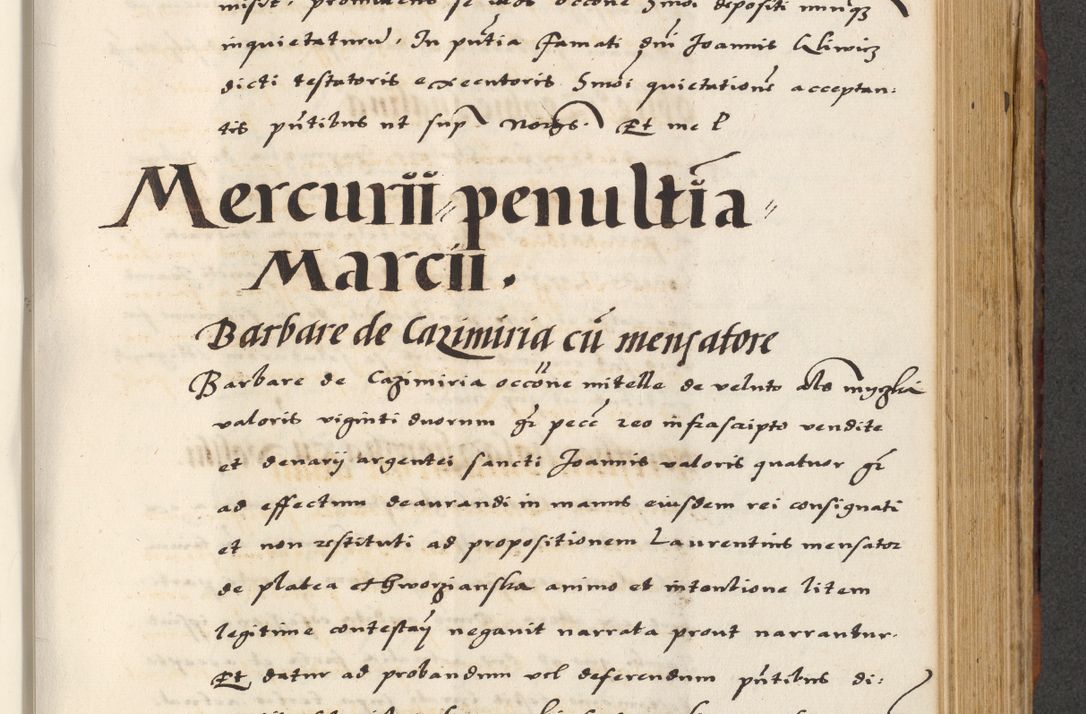 inquietaturũ. In pñtia famati dñi Joannis Kliwicz
dicti testatoris executoris hmõi quietationẽ acceptan:
tis pñtibus ut sup Et me
Mercurii penultĩa
Marcii.
Barbare de Cazimiria cũ mensatore
Barbare de Cazimiria occõne mitelle de veluto als myczki
valoris viginti duorum gr pecc reo infrascripto vendite
et denarij argentei sancti Joannis valoris quatuor gr
ad effectum deaurandi in manus eiusdem rei consignati
et non restituti ad propositionem Laurentius mensator
de platea animo et intentione litem
legitime contestañ negavit narrata prout narrantur.
Et datur ad probandum vel deferendum pñtibus di: